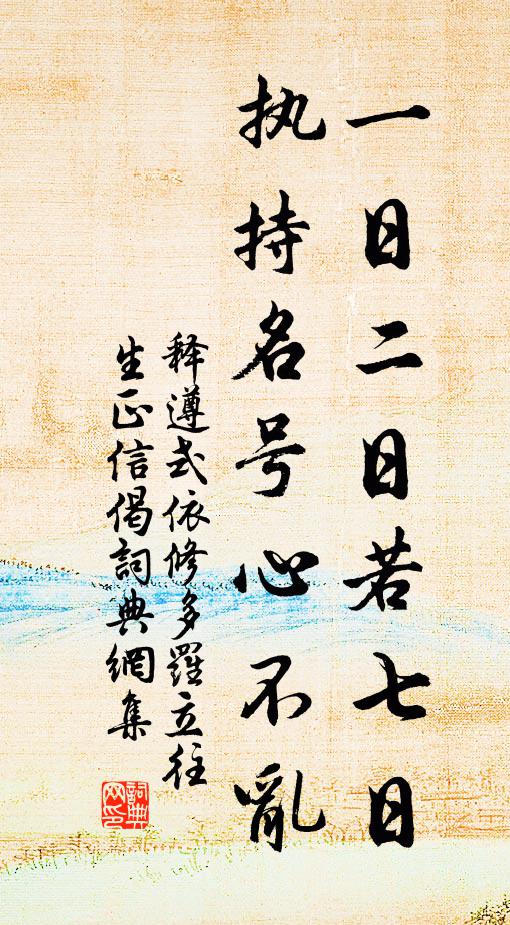 一日二日若七日
执持名号心不亂
释遵式依修多羅立往
生正信偈詞典網集
詞典网印